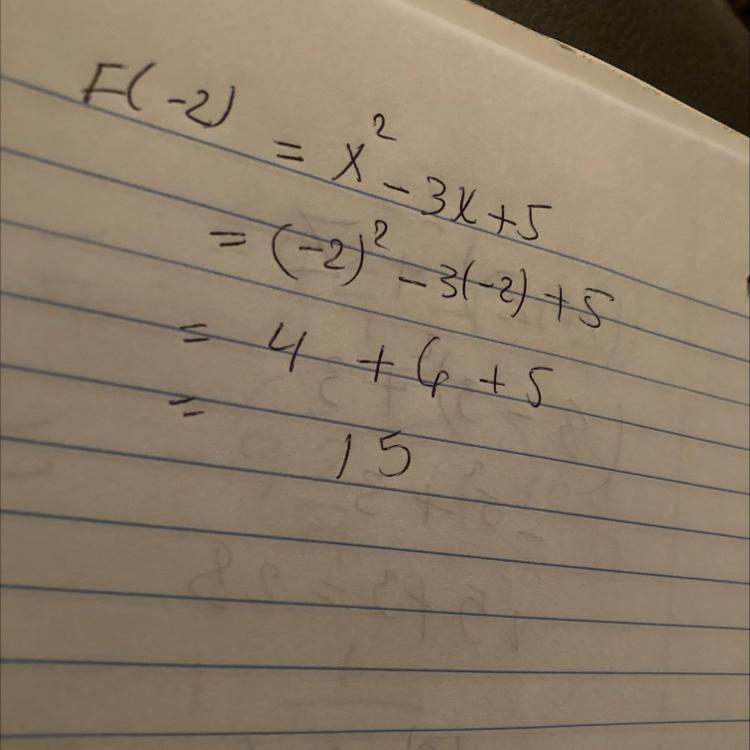 F(-2) = x² - 3x + 5
= (-2)² - 3(-2) + 5
= 4 + 6 + 5
= 15